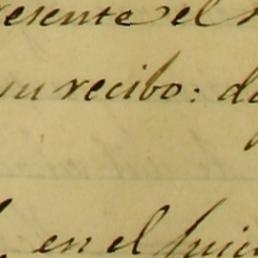 resente el
su recibo:
en el